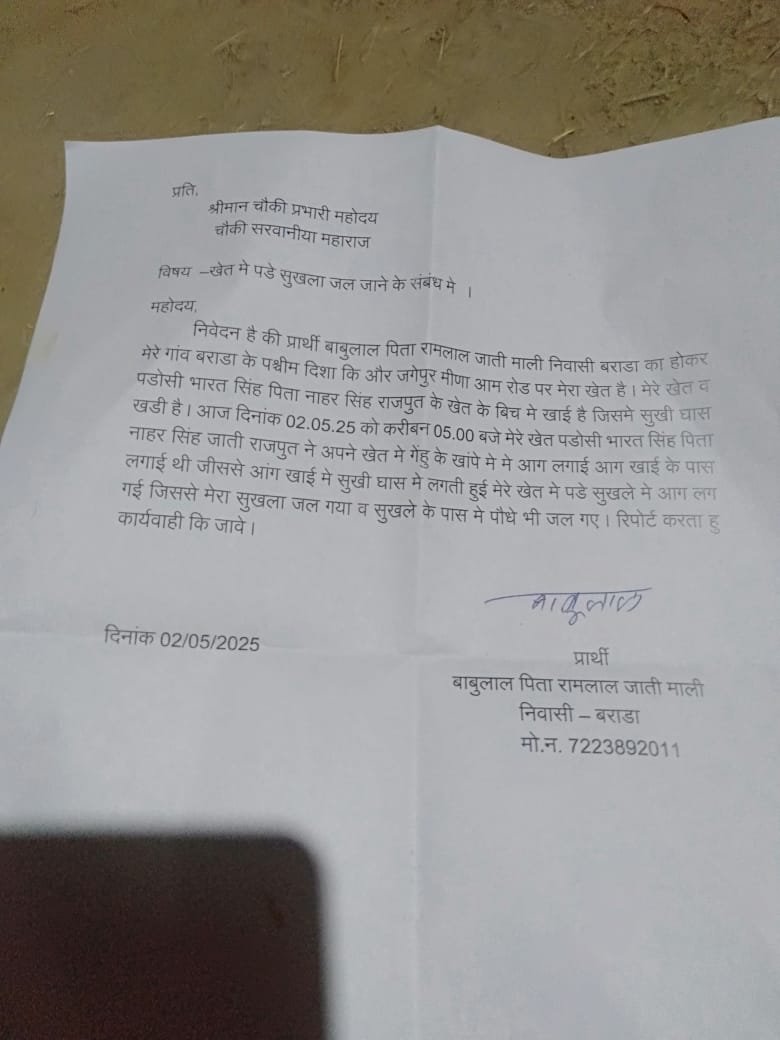 प्रति,
श्रीमान चौकी प्रभारी महोदय
चौकी सरवानीया महाराज
विषय –खेत मे पडे सुखला जल जाने के संबंध मे ।
महोदय,
निवेदन है की प्रार्थी बाबुलाल पिता रामलाल जाती माली निवासी बराडा का होकर
मेरे गांव बराडा के पश्चीम दिशा कि और जगेपुर मीणा आम रोड पर मेरा खेत है । मेरे खेत व
पडोसी भारत सिंह पिता नाहर सिंह राजपुत के खेत के बिच मे खाई है जिसमे सुखी घास
खडी है । आज दिनांक 02.05.25 को करीबन 05.00 बजे मेरे खेत पडोसी भारत सिंह पिता
नाहर सिंह जाती राजपुत ने अपने खेत मे गेंहु के खांपे मे मे आग लगाई आग खाई के पास
लगाई थी जीससे आंग खाई मे सुखी घास मे लगती हुई मेरे खेत मे पडे सुखले मे आग लग
गई जिससे मेरा सुखला जल गया व सुखले के पास मे पौधे भी जल गए । रिपोर्ट करता हु
कार्यवाही कि जावे ।
बाबुलाल
दिनांक 02/05/2025
प्रार्थी
बाबुलाल पिता रामलाल जाती माली
निवासी – बराडा
मो.न. 7223892011